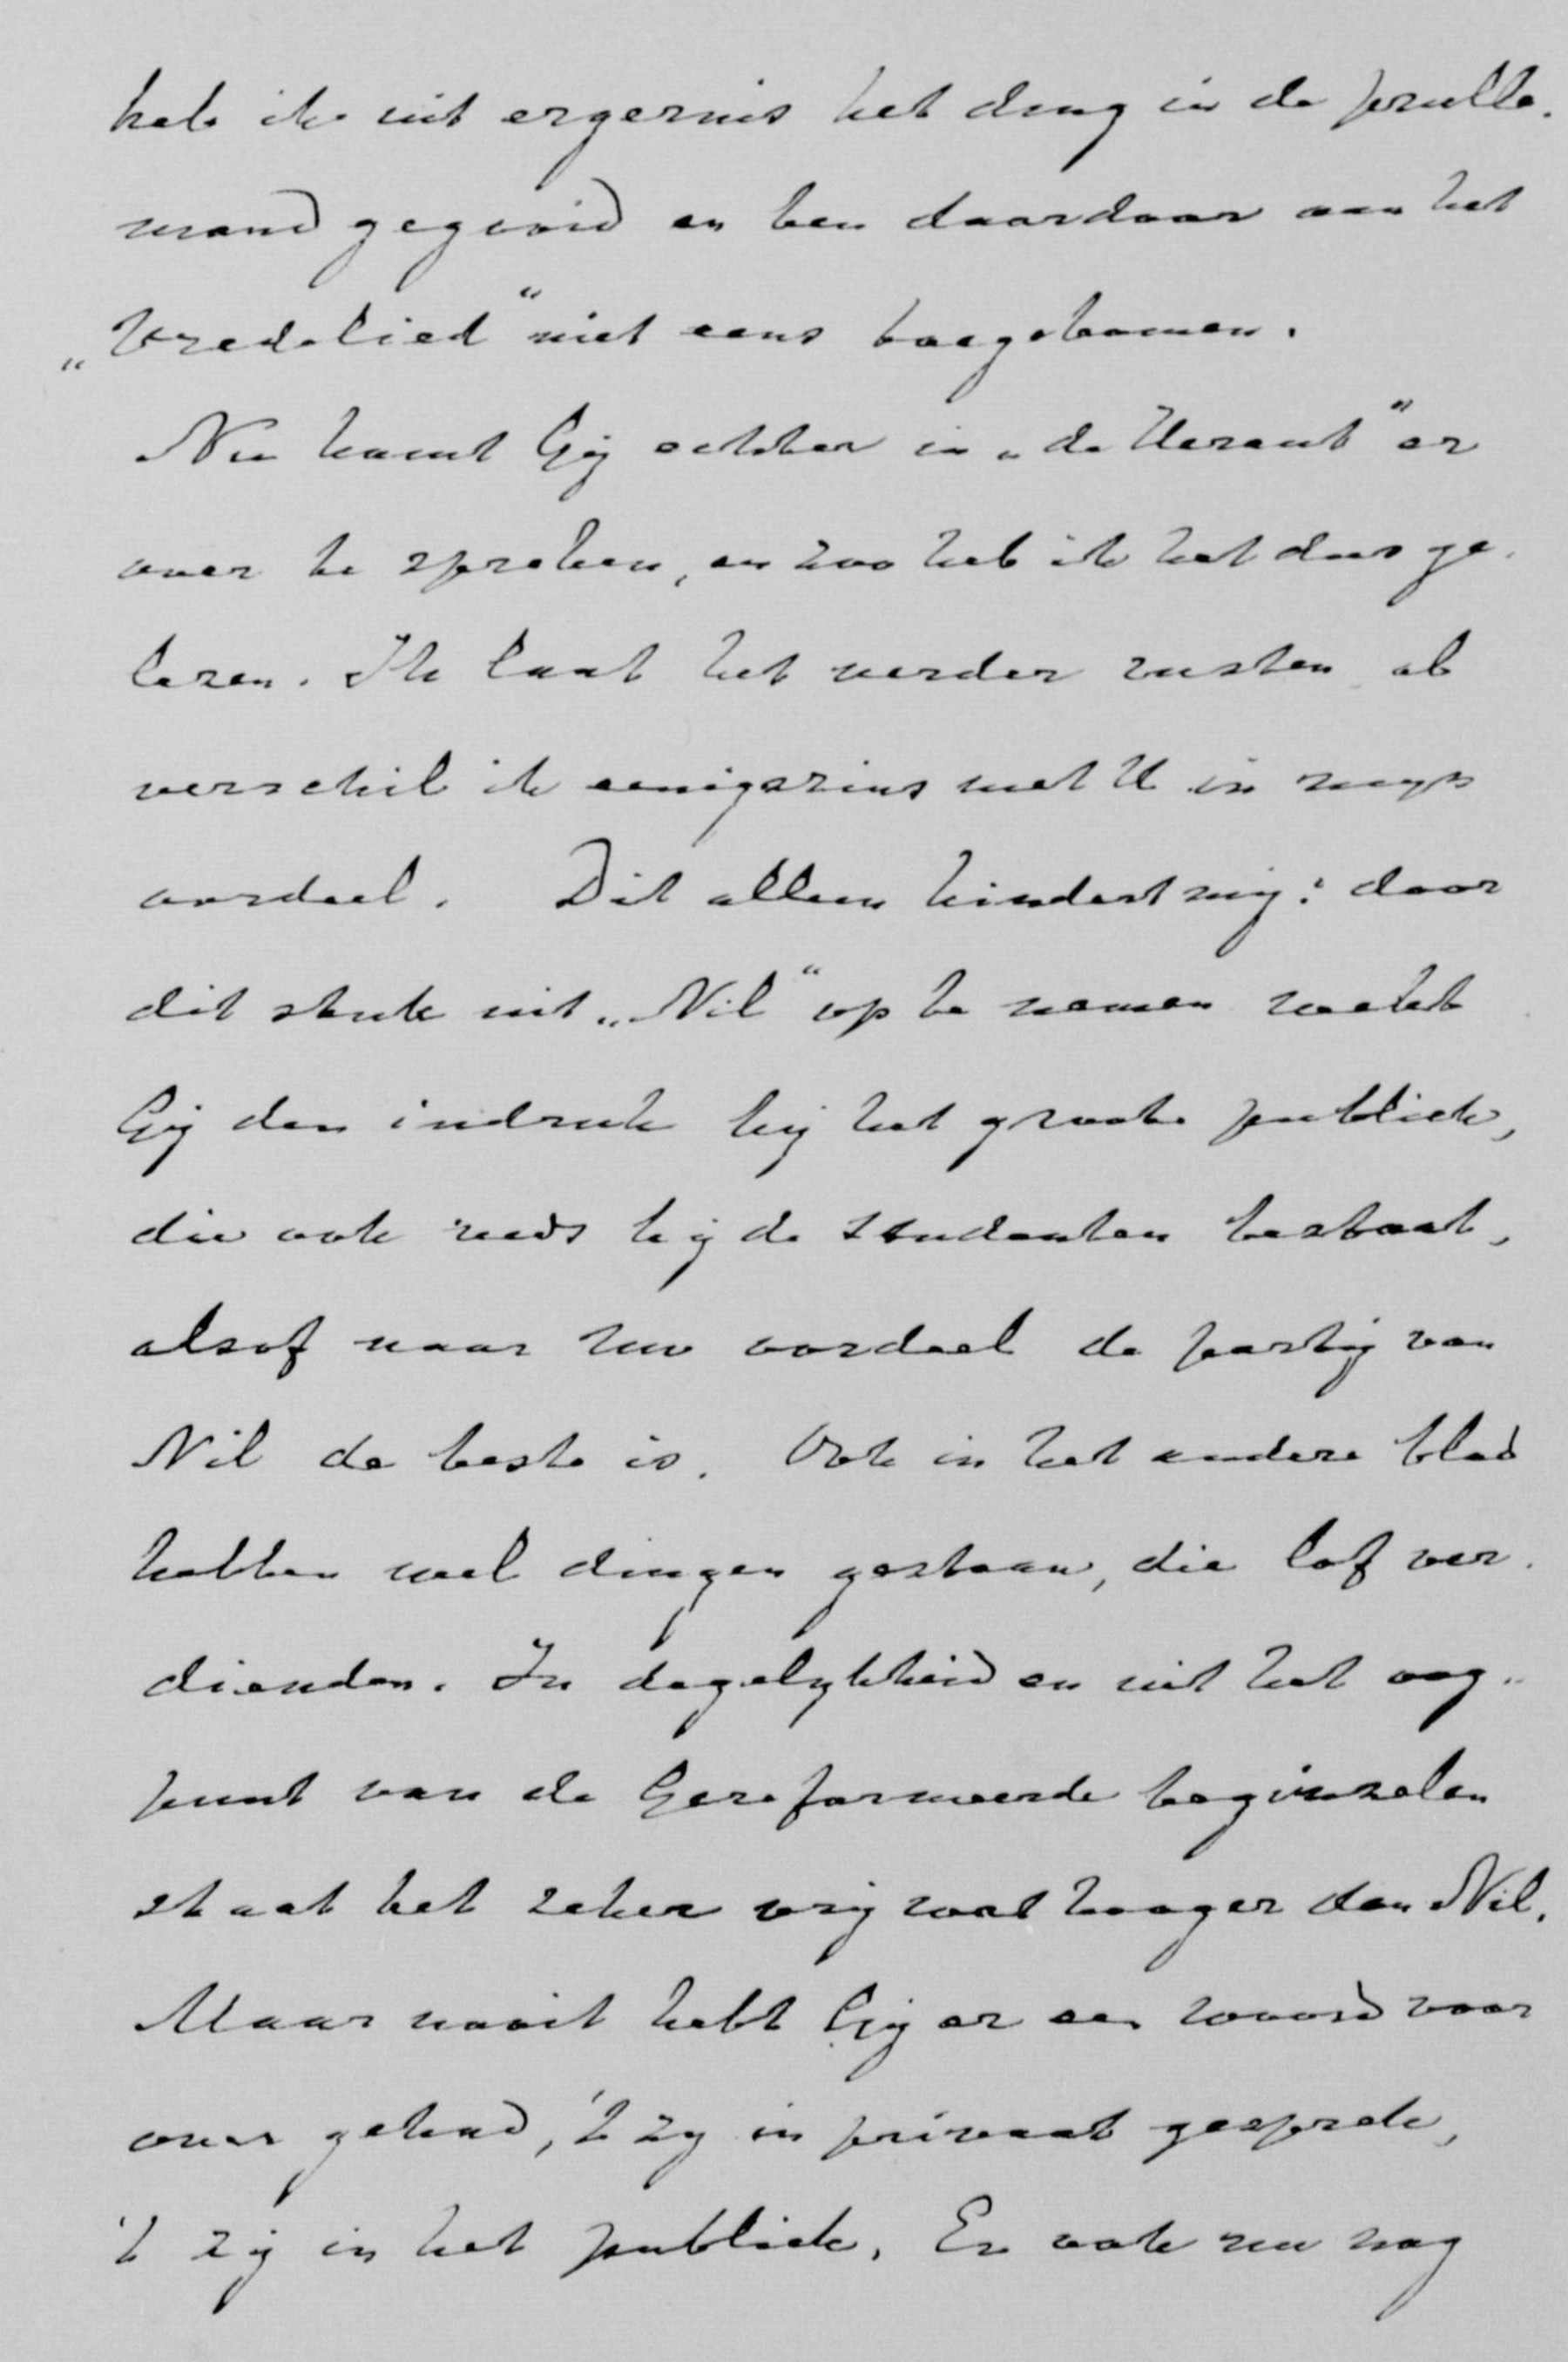 heb ik uit ergernis het ding in de prulle-
mand gegooid en ben daardoor aan het
„Vredelied" niet eens toegekomen.
Nu komt Gij echter in „de Heraut" er
over te spreken, en zoo heb ik het dus ge-
lezen. Ik laat het verder rusten al
verschil ik eenigszins met U in
oordeel. Dit alleen hindert mij: door
dit stuk uit „Nil" op te nemen wekt
Gij den indruk bij het groote publiek,
die ook reeds bij de studenten bestaat,
alsof naar Uw oordeel de partij van
Nil de beste is. Ook in het andere blad
hebben wel dingen gestaan, die lof ver-
dienden. In degelykheid en uit het oog-
punt van de Gereformeerde beginselen
staat het zeker vrij wat hooger dan Nil.
Maar nooit hebt Gij er een woord voor
over gehad, 't zy in privaat gesprek,
't zij in het publiek. En ook nu nog